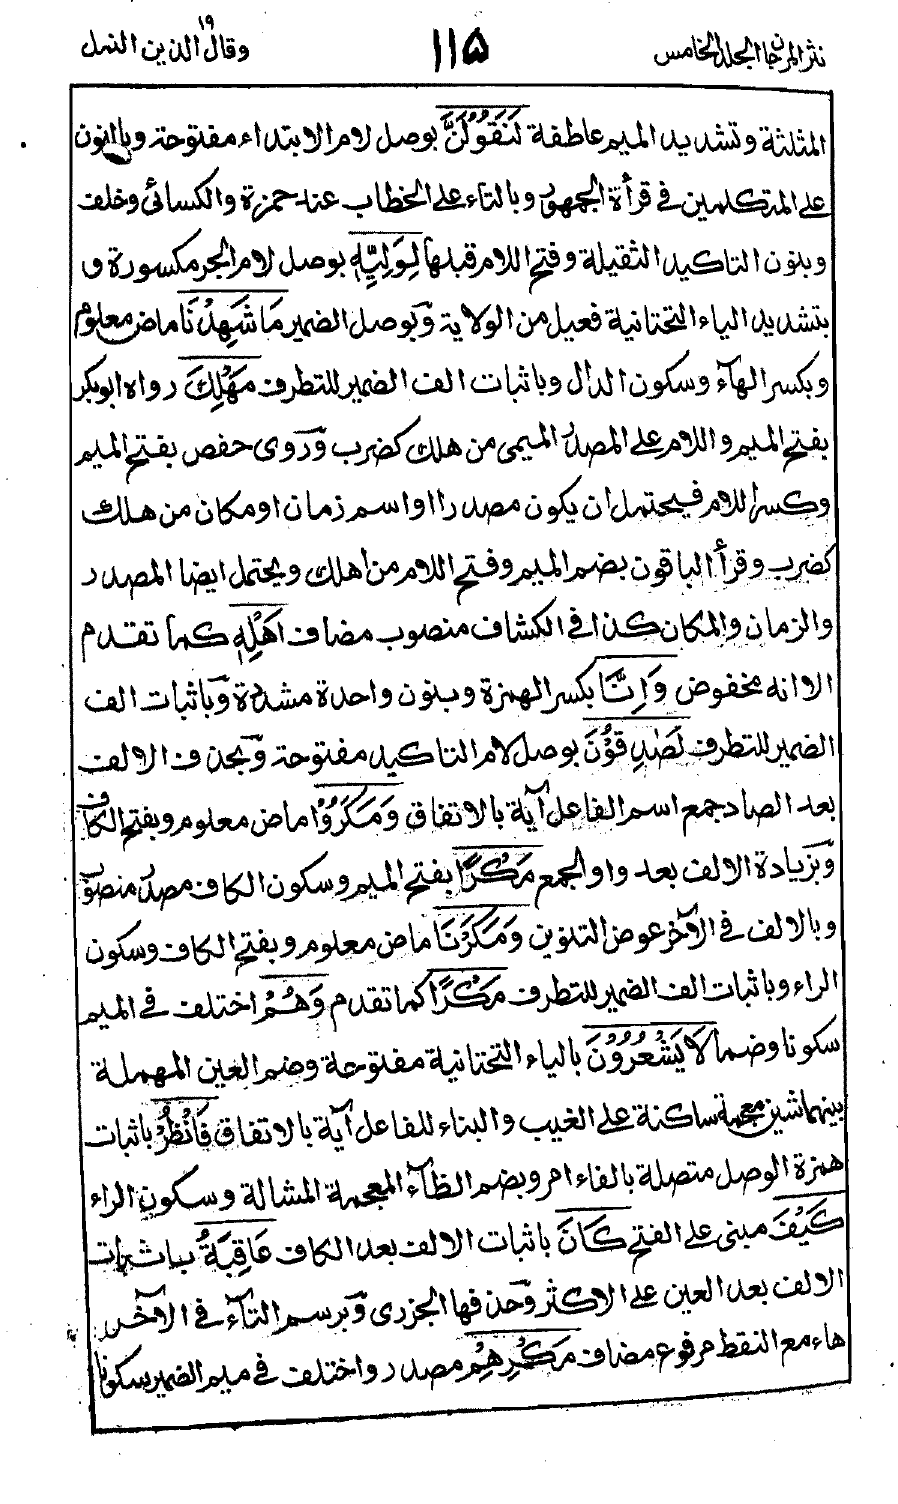 نثر المرجان المجلد الخامس
١١٥
وقال الذين ١٩ النمل
المثلثة وتشديد الميم عاطفة لَنَقُولَنَّ بوصل لام الابتداء مفتوحة وبالنون
على المتكلمين فى قرأة الجمهور وبالتاء على الخطاب عند حمزة والكسائى وخلف
وبنون التاكيد الثقيلة وفتح اللام قبلها لِوَلِيِّهٖ بوصل لام الجر مكسورة و
بتشديد الياء التحتانية فعيل من الولاية وبوصل الضمير مَا شَهِدْنَا ماض معلوم
وبكسر الهاء وسكون الدال وباثبات الف الضمير للتطرف مَهْلِكَ رواه ابو بكر
بفتح الميم واللام على المصدر الميمى من هلك كضرب وروى حفص بفتح الميم
وكسر اللام فيحتمل ان يكون مصدرا او اسم زمان او مكان من هلك
كضرب وقرأ الباقون بضم الميم وفتح اللام من اهلك ويحتمل ايضا المصدر
والزمان والمكان كذا فى الكشاف منصوب مضاف اَهْلِهٖ كما تقدم
الا انه مخفوض وَاِنَّا بكسر الهمزة وبنون واحدة مشددة وباثبات الف
الضمير للتطرف لَصٰدِقُوْنَ بوصل لام التاكيد مفتوحة وبحذف الالف
بعد الصاد جمع اسم الفاعل آية بالاتفاق وَمَكَرُوْا ماض معلوم وبفتح الكاف
وبزيادة الالف بعد واو الجمع مَكْرًا بفتح الميم وسكون الكاف مصدر منصوب
وبالالف فى الآخر عوض التنوين وَمَكَرْنَا ماض معلوم وبفتح الكاف وسكون
الراء وباثبات الف الضمير للتطرف مَكْرًا كما تقدم وَهُمْ اختلف فى الميم
سكونا وضما لَا يَشْعُرُوْنَ بالياء التحتانية مفتوحة وضم العين المهملة
بينهما شين معجمة ساكنة على الغيب والبناء للفاعل آية بالاتفاق فَانْظُرْ باثبات
همزة الوصل متصلة بالفاء امر وبضم الظاء المعجمة المشالة وسكون الراء
كَيْفَ مبنى على الفتح كَانَ باثبات الالف بعد الكاف عَاقِبَةُ باثبات
الالف بعد العين على الاكثر وحذفها الجزرى وبرسم التاء فى الآخر
هاء مع النقط مرفوع مضاف مَكْرِهِمْ مصدر واختلف فى ميم الضمير سكونا